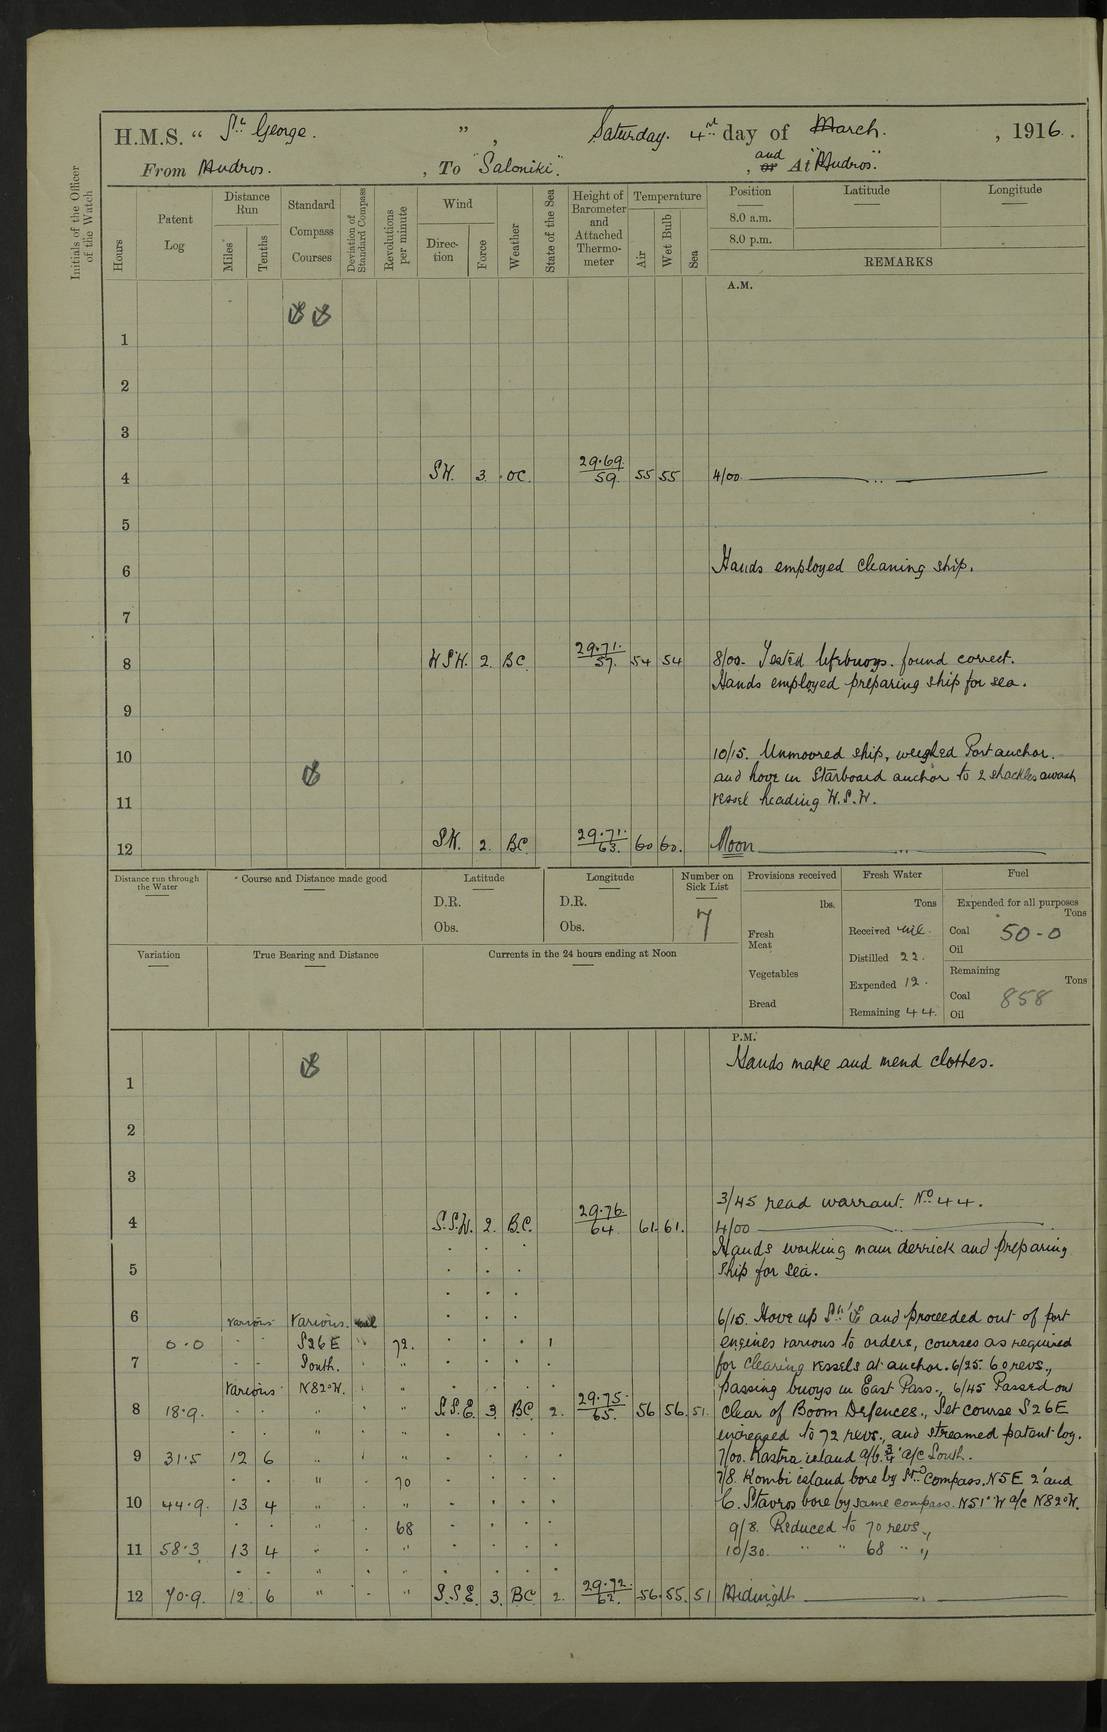 H.M.S. " St George. ", Saturday. 4th day of March. , 1916.
From Mudros. , To "Saloniki". , and or At "Mudros".
Initials of the Officer of the Watch
Hours
Patent Log
Distance Run
Miles
Tenths
Standard Compass Courses
Deviation of Standard Compass
Revolutions per minute
Wind
Direction
Force
Weather
State of the Sea
Height of Barometer and Attached Thermometer
Temperature
Air
Wet Bulb
Sea
Position Latitude Longitude
8.0 a.m.
8.0 p.m.
REMARKS
A.M.
1
2
3
4 SW. 3. OC. 29.69. 59. 55 55 4/00.
5
6 Hands employed cleaning ship.
7
8 WSW. 2. BC. 29.71. 57. 54 54 8/00. Tested lifebuoys. found correct.
Hands employed preparing ship for sea.
9
10 10/15. Unmoored ship, weighed Port anchor.
and hove in Starboard anchor to 2 shackles awash
11 vessel heading W.S.W.
12 SW. 2. BC. 29.71. 63. 60 60. Noon
Distance run through the Water
Course and Distance made good
Latitude
D.R.
Obs.
Longitude
D.R.
Obs.
Number on Sick List
7
Provisions received
lbs.
Fresh Meat
Vegetables
Bread
Fresh Water
Tons
Received nil.
Distilled 22.
Expended 12.
Remaining 44.
Fuel
Expended for all purposes
Tons
Coal 50-0
Oil
Remaining
Tons
Coal 858
Oil
Variation
True Bearing and Distance
Currents in the 24 hours ending at Noon
P.M.
Hands make and mend clothes.
1
2
3
3/45 read warrant. No 44.
4 S.S.W. 2. B.C. 29.76. 64. 61. 61. 4/00
Hands working main derrick and preparing
5 ship for sea.
6 various various. nil 6/15. Hove up and proceeded out of port
0.0 S26E " 72. 1 engines various to orders, courses as required
7 South. " for clearing vessels at anchor. 6/25. 60 revs.,
various N82°W. " passing buoys in East Pass., 6/45 Passed out
8 18.9. " " S.S.E. 3. BC. 2. 29.75. 65. 56 56. 51. clear of Boom Defences., Set course S26E
" increased to 72 revs., and streamed patent log.
9 31.5 12 6 " " 7/00. Kastra island a/b. 3/4' a/c South.
" 70 7/8. Kombi island bore by Std compass. N5E 2' and
10 44.9. 13 4 " " C. Stavros bore by same compass. N51°W a/c N82°W.
" 68 9/8. Reduced to 70 revs.,
11 58.3. 13 4 " " 10/30. " " 68 " ,,
12 70.9. 12. 6 " " S.S.E. 3. BC. 2. 29.72. 62. 56. 55. 51 Midnight